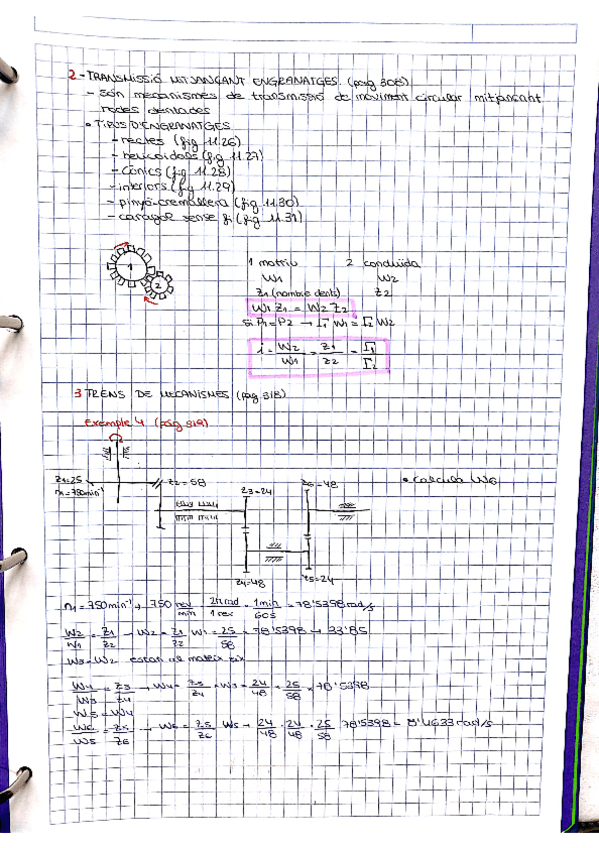 2-TRANSMISSIÓ MITJANÇANT ENGRANATGES. (pàg 308)
- Són mecanismes de transmissió de moviment circular mitjançant
rodes dentades
• TIPUS D'ENGRANATGES
- rectes (fig 11.26)
- helicoïdals (fig 11.27)
- Cònics (fig 11.28)
- interiors (fig 11.29)
- pinyó-cremallera (fig 11.30)
- caragol sense fi (fig 11.31)
1 motriu 2 conduïda
1
2
W1 W2
Z1 (nombre dents) Z2
W1 Z1 = W2 Z2
Si P1 = P2 → Γ1 W1 = Γ2 W2
i = W2/W1 = Z1/Z2 = Γ1/Γ2
3 TRENS DE MECANISMES (pàg 318)
Exemple 4 (pàg 319)
Z1=25
n1=750min⁻¹
Z2=58
Z3=24
Z6=48
• Calcula W6
Z4=48
Z5=24
n1=750min⁻¹ → 750 rev/min · 2π rad/1 rev · 1min/60s = 78'5398 rad/s
W2/W1 = Z1/Z2 → W2 = Z1/Z2 W1 = 25/58 · 78'5398 → 33'85
W3=W2 estan al mateix eix
W4/W3 = Z3/Z4 → W4 = Z3/Z4 · W3 = 24/48 · 25/58 · 78'5398
W5=W4
W6/W5 = Z5/Z6 → W6 = Z5/Z6 W5 → 24/48 · 24/48 · 25/58 78'5398 = 8'4633 rad/s